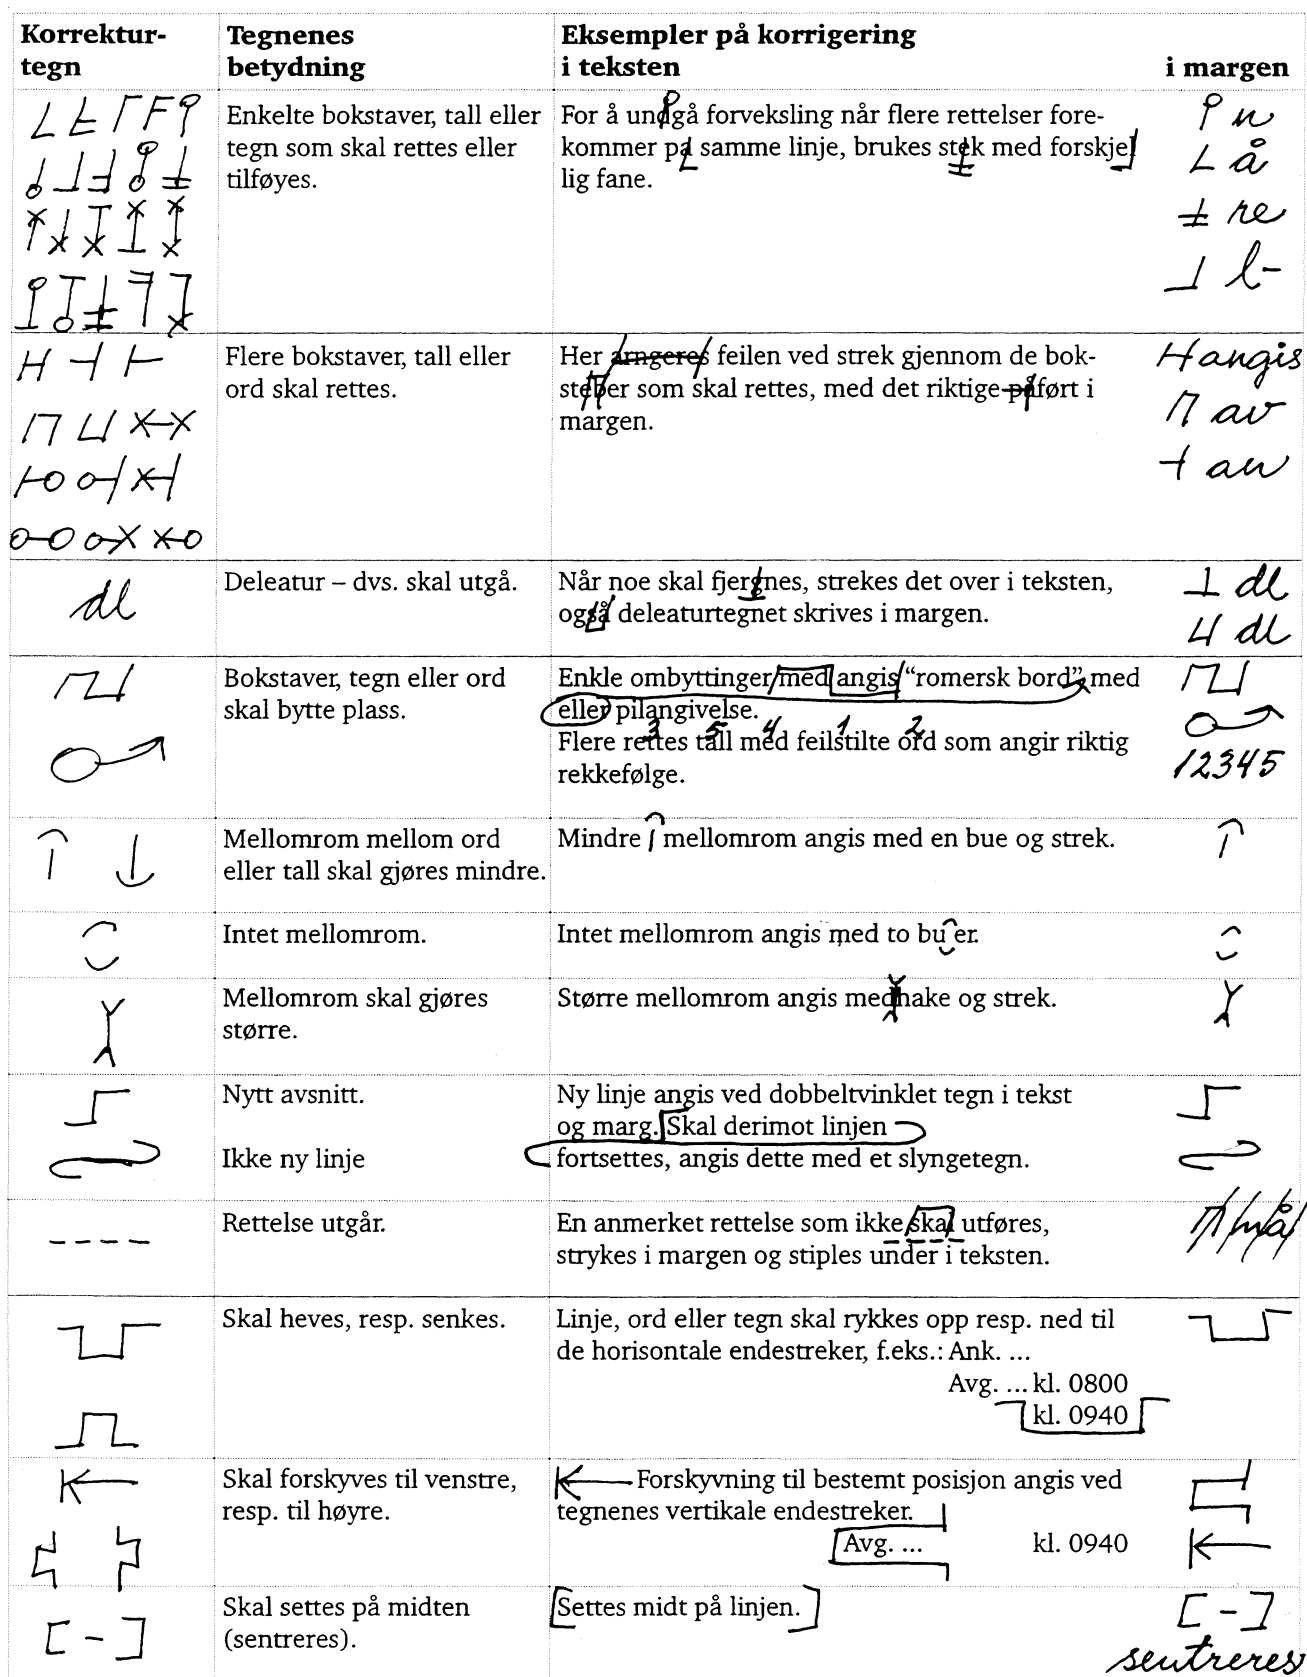 Korrektur-
tegn
Tegnenes
betydning
Eksempler på korrigering
i teksten
i margen
Enkelte bokstaver, tall eller
tegn som skal rettes eller
tilføyes.
For å undgå forveksling når flere rettelser fore-
kommer på samme linje, brukes stek med forskjel
lig fane.
n
å
re
l-
Flere bokstaver, tall eller
ord skal rettes.
Her arngeres feilen ved strek gjennom de bok-
steber som skal rettes, med det riktige påført i
margen.
angis
av
an
dl
Deleatur – dvs. skal utgå.
Når noe skal fjergnes, strekes det over i teksten,
også deleaturtegnet skrives i margen.
dl
dl
Bokstaver, tegn eller ord
skal bytte plass.
Enkle ombyttinger med angis “romersk bord” med
eller pilangivelse.
3 5 4 1 2
Flere rettes tall med feilstilte ord som angir riktig
rekkefølge.
12345
Mellomrom mellom ord
eller tall skal gjøres mindre.
Mindre mellomrom angis med en bue og strek.
Intet mellomrom.
Intet mellomrom angis med to bu er.
Mellomrom skal gjøres
større.
Større mellomrom angis medhake og strek.
Nytt avsnitt.
Ikke ny linje
Ny linje angis ved dobbeltvinklet tegn i tekst
og marg. Skal derimot linjen
fortsettes, angis dette med et slyngetegn.
Rettelse utgår.
En anmerket rettelse som ikke skal utføres,
strykes i margen og stiples under i teksten.
må
Skal heves, resp. senkes.
Linje, ord eller tegn skal rykkes opp resp. ned til
de horisontale endestreker, f.eks.: Ank. ...
Avg. ... kl. 0800
kl. 0940
Skal forskyves til venstre,
resp. til høyre.
Forskyvning til bestemt posisjon angis ved
tegnenes vertikale endestreker.
Avg. ... kl. 0940
Skal settes på midten
(sentreres).
[ - ]
[Settes midt på linjen.]
[ - ]
sentreres